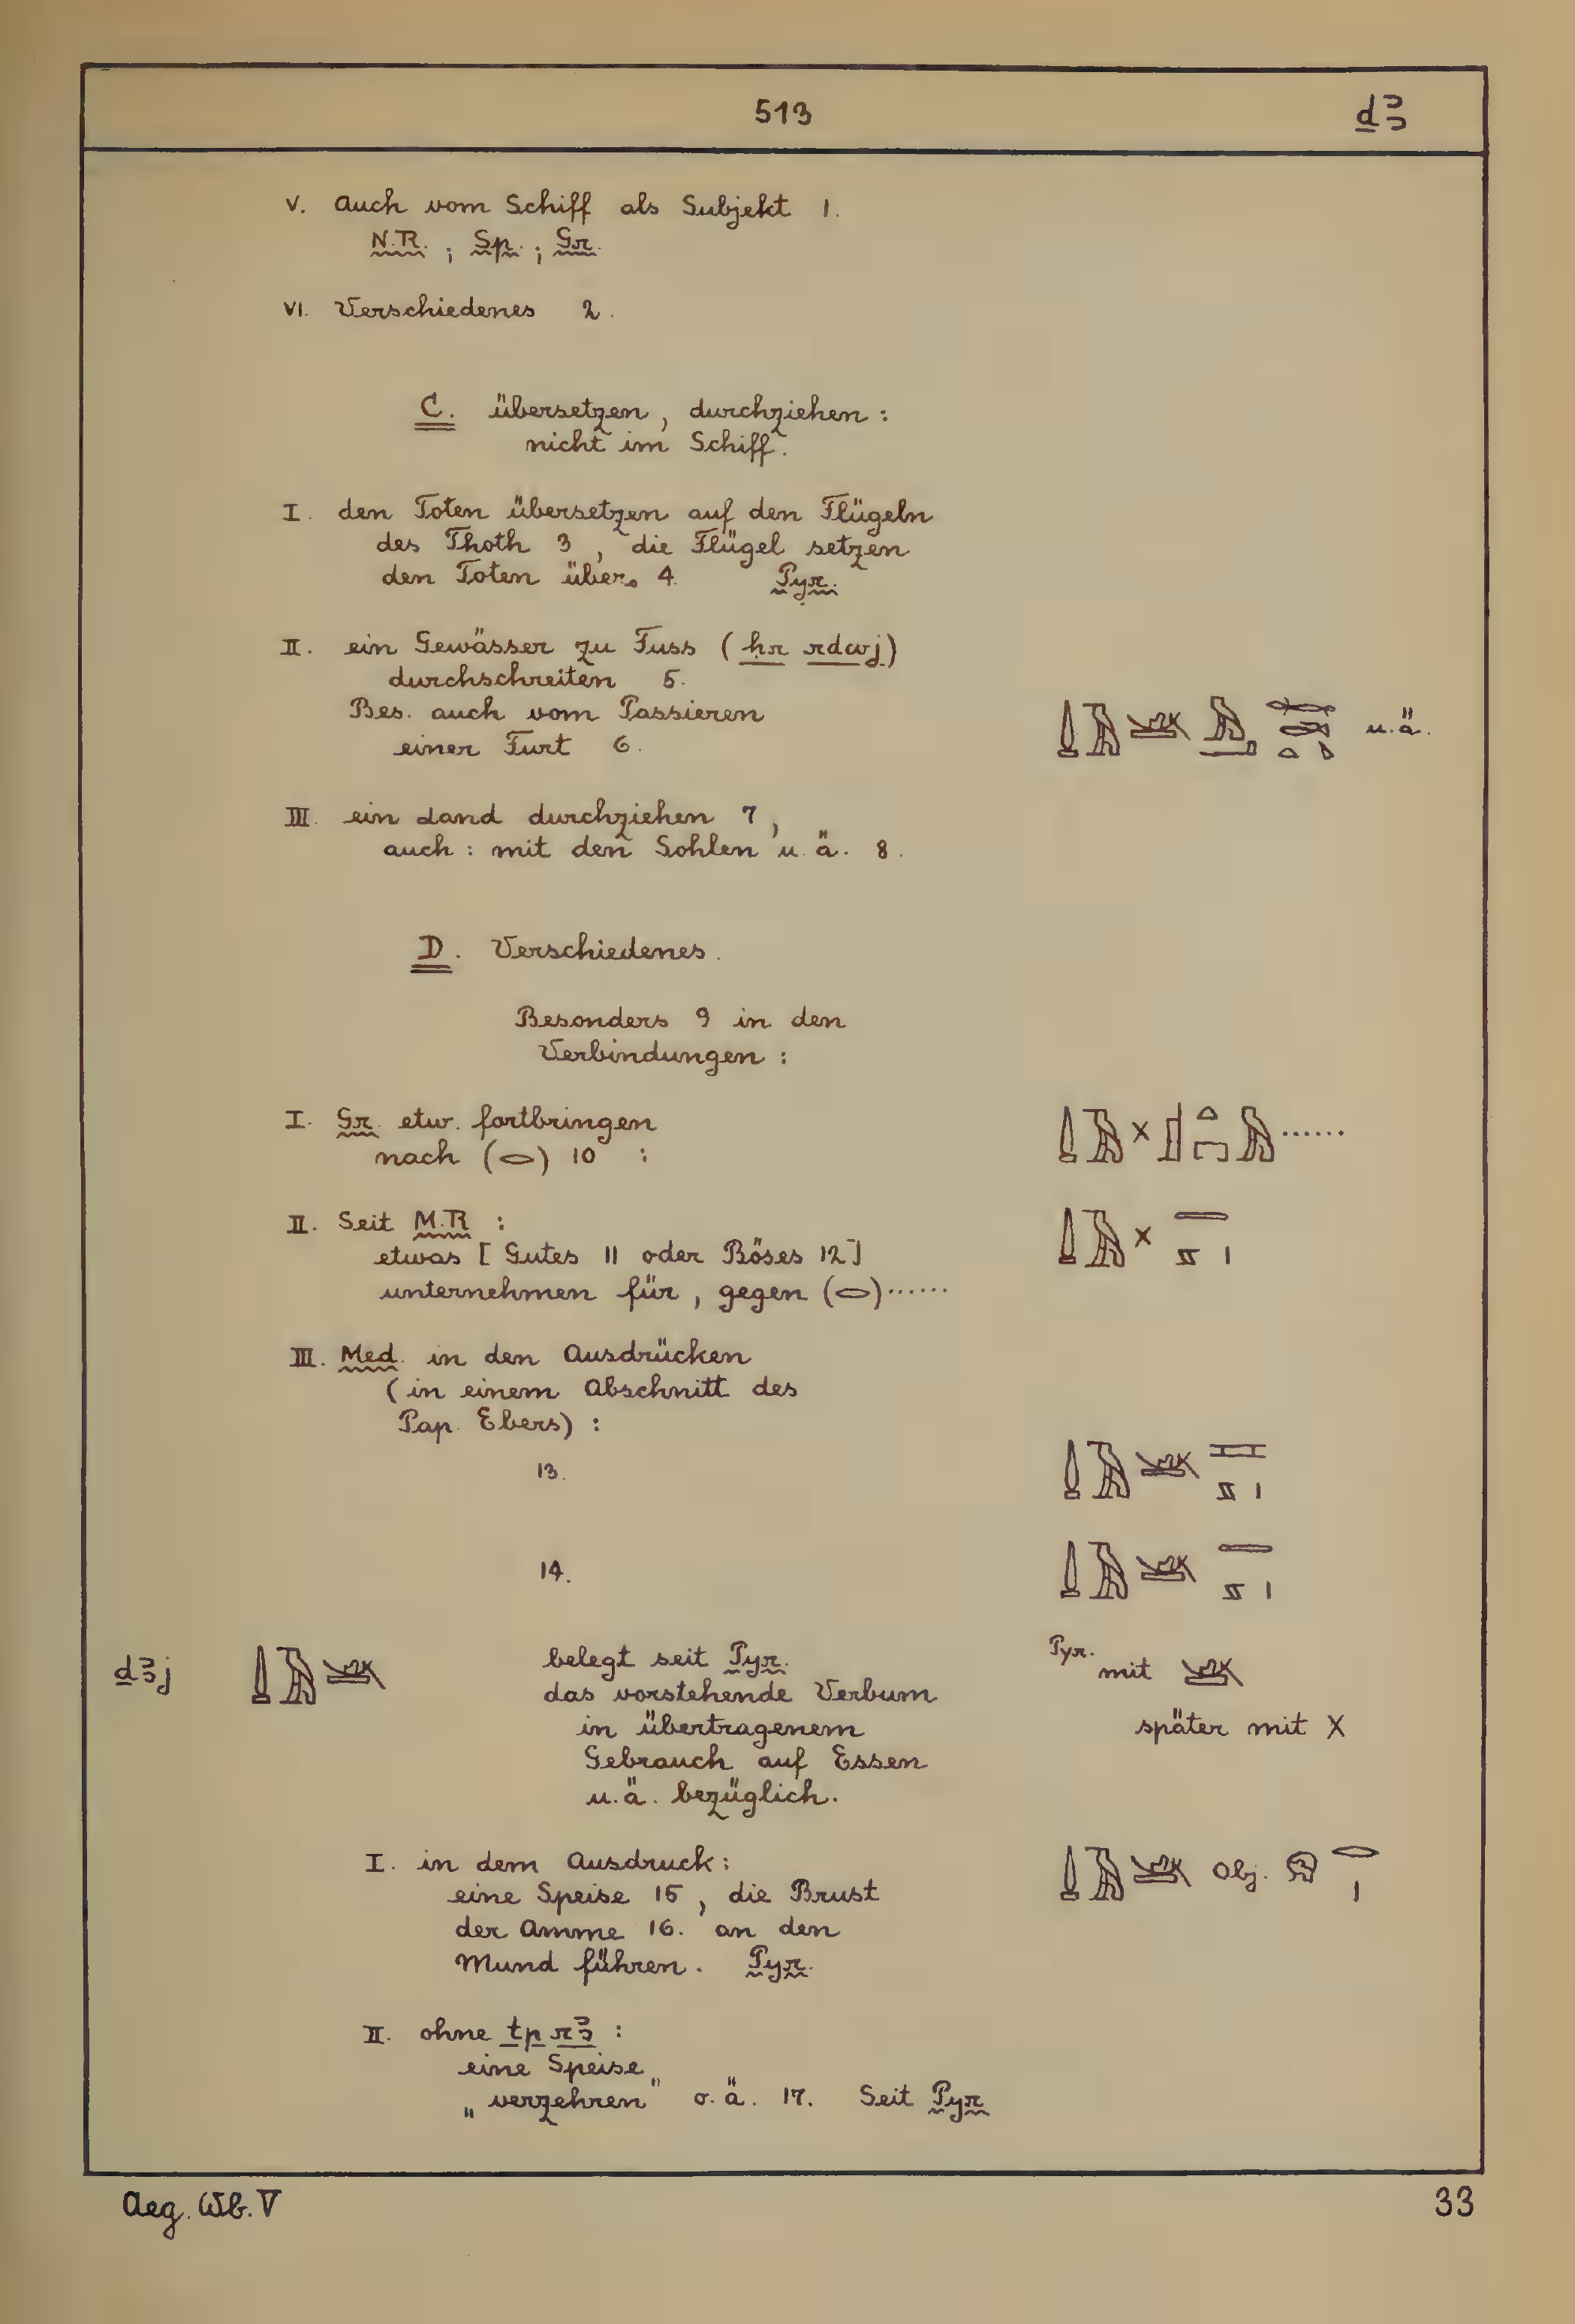 513 ḏꜣ
V. Auch vom Schiff als Subjekt 1.
N.R.; Sp.; Gr.
VI. Verschiedenes 2.
C. übersetzen, durchziehen:
nicht im Schiff.
I. den Toten übersetzen auf den Flügeln
des Thoth 3, die Flügel setzen
den Toten über. 4. Pyr.
II. ein Gewässer zu Fuss (ḥr rdwj)
durchschreiten 5.
Bes. auch vom Passieren
einer Furt 6. u.ä.
III. ein Land durchziehen 7,
auch: mit den Sohlen u.ä. 8.
D. Verschiedenes.
Besonders 9 in den
Verbindungen:
I. Gr. etw. fortbringen
nach (𓂋) 10 : ......
II. Seit M.R :
etwas [Gutes 11 oder Böses 12]
unternehmen für, gegen (𓂋)......
III. Med. in den Ausdrücken
(in einem Abschnitt des
Pap. Ebers):
13.
14.
ḏꜣj belegt seit Pyr. Pyr. mit
das vorstehende Verbum
in übertragenem später mit X
Gebrauch auf Essen
u.ä. bezüglich.
I. in dem Ausdruck: Obj. 𓁶 𓂋 𓏤
eine Speise 15, die Brust
der Amme 16. an den
Mund führen. Pyr.
II. ohne tp rꜣ :
eine Speise
„verzehren" o.ä. 17. Seit Pyr
Aeg. Wb. V 33